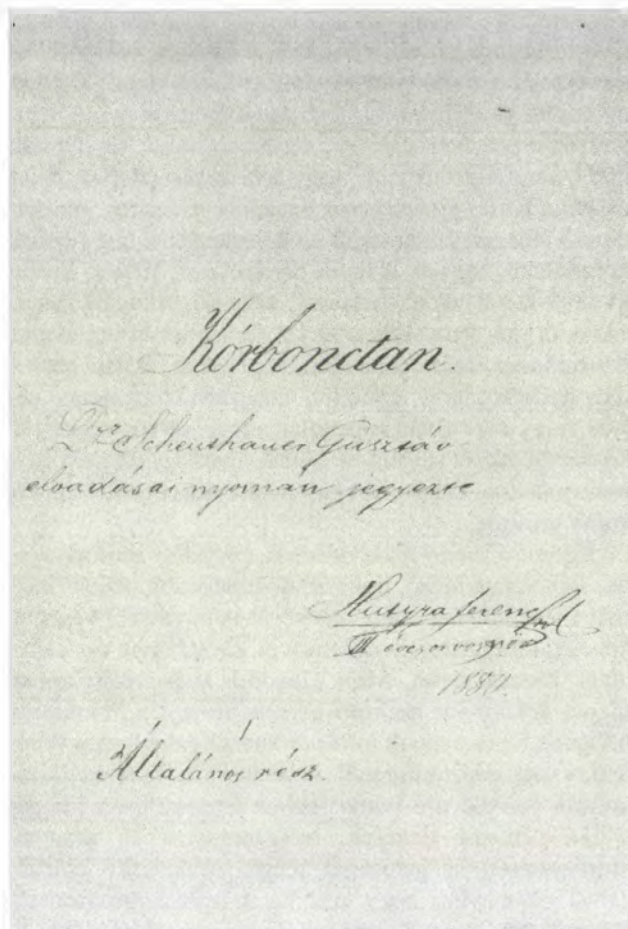 Kórbonctan.
Dr Scheuthauer Gusztáv
előadásai nyomán jegyezte
Hutyra Ferencz
III éves orvosnöv.
Általános rész.